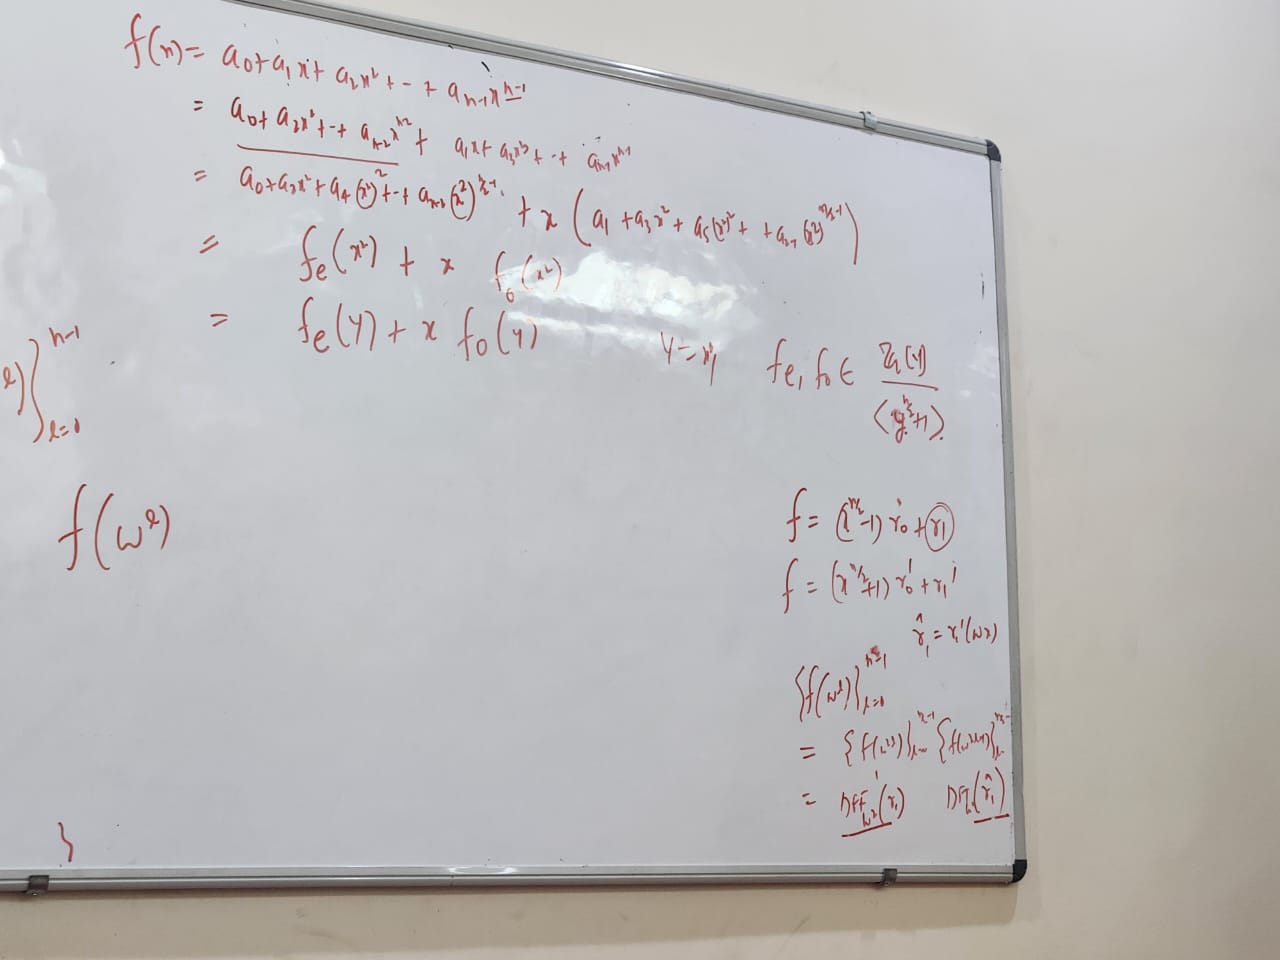 f(x) = a₀ + a₁x + a₂x² + -- + aₙ₋₁xⁿ⁻¹
= a₀ + a₂x² + -- + aₙ₋₂xⁿ⁻² + a₁x + a₃x³ + -- + aₙ₋₁xⁿ⁻¹
= a₀ + a₂x² + a₄(x²)² + -- + aₙ₋₂(x²)^{n/2-1} + x(a₁ + a₃x² + a₅(x²)² + + aₙ₋₁(x²)^{n/2-1})
= fₑ(x²) + x f₀(x²)
= fₑ(y) + x f₀(y) y = x², fₑ, f₀ ∈ ℤ_q(y) / ⟨y^{n/2}+1⟩
)}_{l=0}^{n-1}
f(ω^l)
f = (x^{n/2}-1) r₀ + r₁
f = (x^{n/2}+1) r₀' + r₁'
r̂₁ = r₁'(ωx)
{f(ω^l)}_{l=0}^{n-1}
= {f(ω^{2l})}_{l=0}^{n/2-1} {f(ω^{2l+1})}_{l=0}^{n/2-1}
= DFT_{ω²}(r₁) DFT_{ω²}(r̂₁)
}